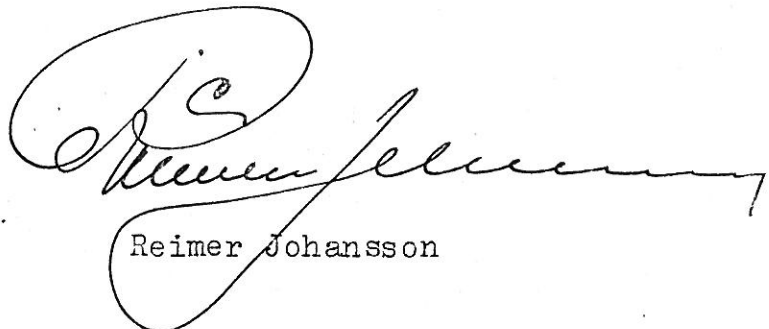 Reimer Johansson
Reimer Johansson